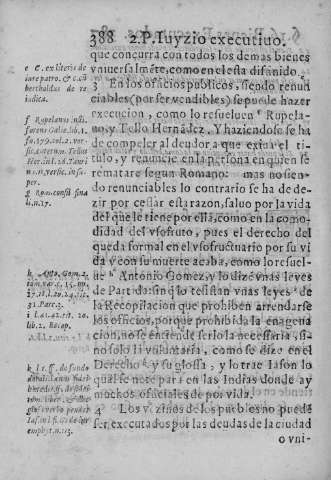 388 2.P. Iuyzio executiuo.
que concurra con todos los demas bienes
vniuersalmēte, como en el esta difinido.
3 En los officios publicos, siendo renun
ciables (por ser vendibles) se puede hazer
execucion, como lo resueluen Rupela-
no, y Tello Hernādez. Y haziendose se ha
de compeler al deudor a que exiua el ti-
tulo, y renuncie en la persona en quien se
rematare segun Romano: mas no sien-
do renunciables lo contrario se ha de de-
zir por cessar esta razon, saluo por la vida
del que le tiene por ella, como en la como-
didad del vsofruto, pues el derecho del
queda formal en el vsofructuario por su vi
da y con su muerte acaba, como lo resuel-
ue Antonio Gomez, y lo dize vnas leyes
de Partida: sin q̃ lo resistan vnas leyes de
la Recopilacion que prohiben arrendarse
los officios, porque prohibida la enagena
cion, no se entiende serlo la necessaria, si-
no solo la voluntaria, como se dize en el
Derecho y su glossa, y lo trae Iason lo
qual se note para en las Indias donde ay
muchos officiales de por vida.
4 Los vezinos de los pueblos no puedē
ser executados por las deudas de la ciudad
o vni-
e C. ex literis de
iure patro. & c. cū
bertholdus de re
iudica.
f Rupelanus insti.
lib. 1.
g Rom. consil. sin
h Anto. Gom. 2.
tom. var. c. 15. nu.
Part. 3.
lib. 2. Recop.
k l. 1. ff. de fundo
Iaso in l. si de
emphyt. n. 115.